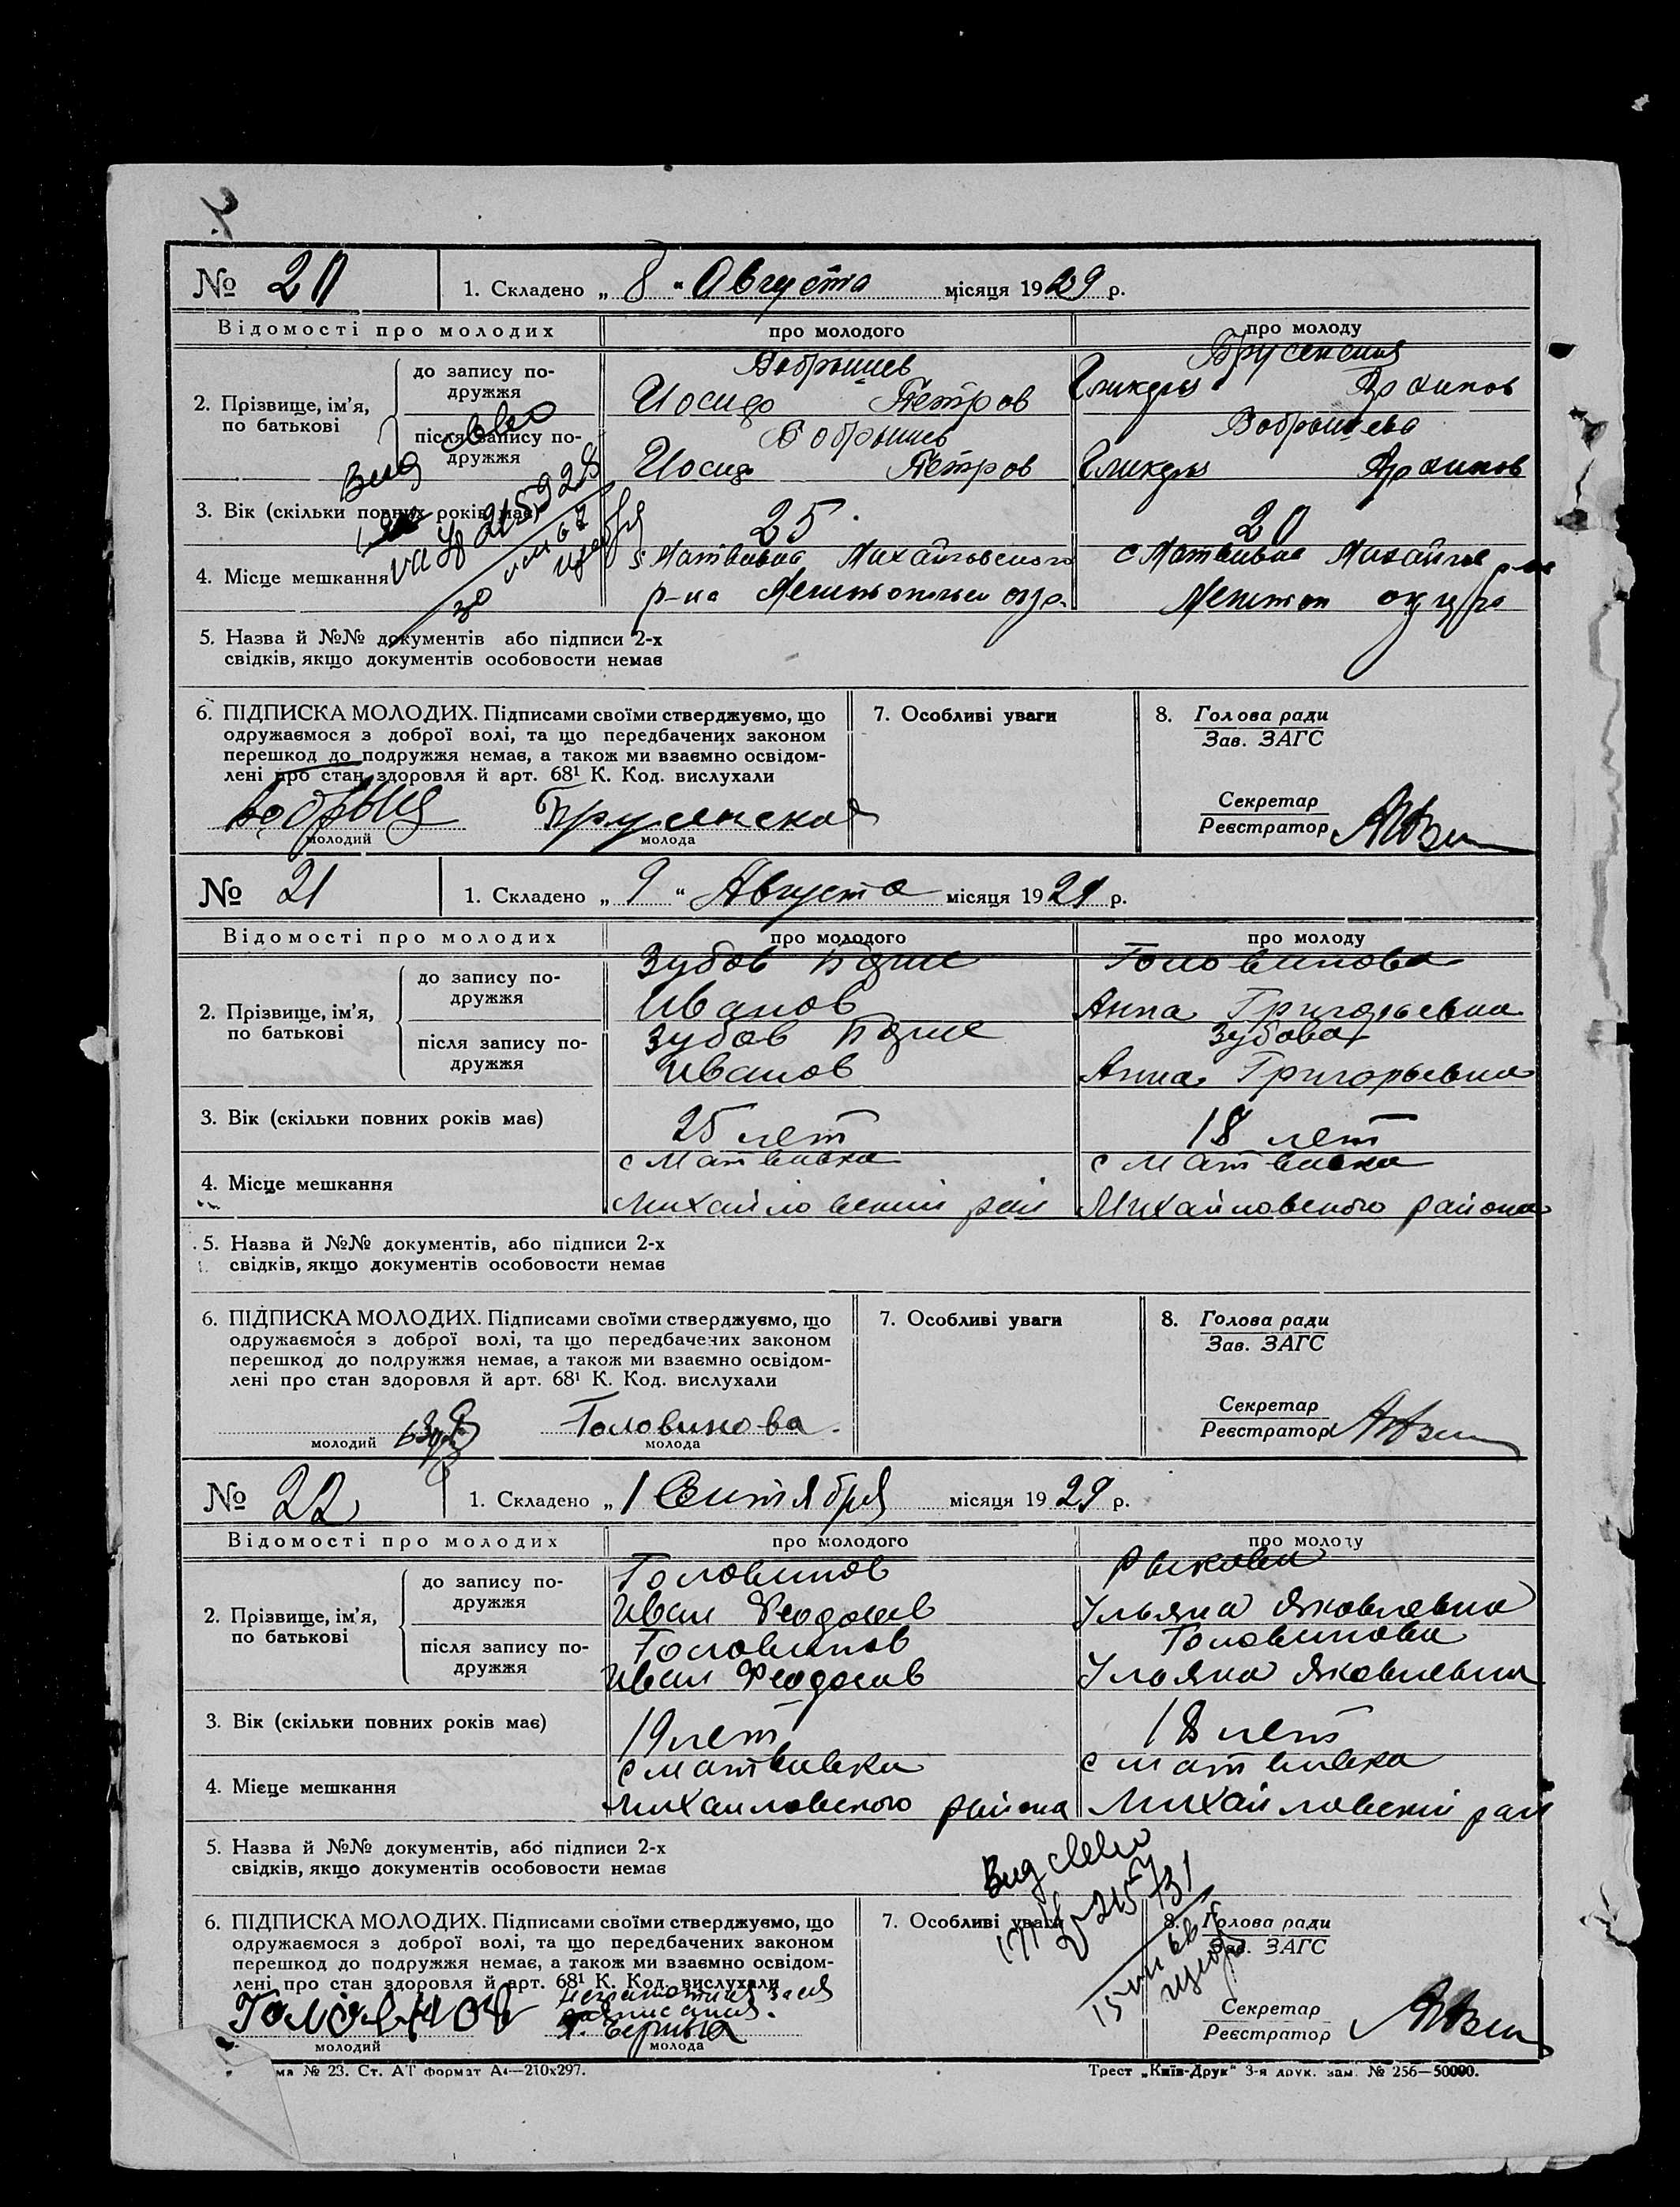 № 20 1. Складено „ 8 " Августа місяця 1929 р.
Відомості про молодих про молодого про молоду
2. Прізвище, ім'я, по батькові
до запису по-
дружжя
Бобрышев
Иосиф Петров
Архипов
після запису по-
дружжя
Бобрышев
Иосиф Петров
Бобрышева
Архипов
Вид св-во
3. Вік (скільки повних років має) 25 20
4. Місце мешкання с Матвеевка Михайловского с Матвеевка
р-на Мелитопольск окр. Мелитоп округа
5. Назва й №№ документів або підписи 2-х
свідків, якщо документів особовости немає
6. ПІДПИСКА МОЛОДИХ. Підписами своїми стверджуємо, що
одружаємося з доброї волі, та що передбачених законом
перешкод до подружжя немає, а також ми взаємно освідом-
лені про стан здоровля й арт. 68¹ К. Код. вислухали
Брусенская
молодий молода
7. Особливі уваги
8. Голова ради
Зав. ЗАГС
Секретар
Реєстратор
№ 21 1. Складено „ 9 " Августа місяця 1929 р.
Відомості про молодих про молодого про молоду
2. Прізвище, ім'я, по батькові
до запису по-
дружжя
Зубов Головинова
Иванов Анна Григорьевна
після запису по-
дружжя
Зубов Зубова
Иванов Анна Григорьевна
3. Вік (скільки повних років має) 25 лет 18 лет
4. Місце мешкання с Матвеевка с Матвеевка
Михайловский рай Михайловского района
5. Назва й №№ документів, або підписи 2-х
свідків, якщо документів особовости немає
6. ПІДПИСКА МОЛОДИХ. Підписами своїми стверджуємо, що
одружаємося з доброї волі, та що передбачених законом
перешкод до подружжя немає, а також ми взаємно освідом-
лені про стан здоровля й арт. 68¹ К. Код. вислухали
Головинова
молодий молода
7. Особливі уваги
8. Голова ради
Зав. ЗАГС
Секретар
Реєстратор
№ 22 1. Складено „ 1 Сентября місяця 1929 р.
Відомості про молодих про молодого про молоду
2. Прізвище, ім'я, по батькові
до запису по-
дружжя
Головинов Рыкова
Иван Феодосов Ульяна Яковлевна
після запису по-
дружжя
Головинов Головинова
Иван Феодосов Ульяна Яковлевна
3. Вік (скільки повних років має) 19 лет 18 лет
4. Місце мешкання с Матвеевка с Матвеевка
Михайловского района Михайловский рай
5. Назва й №№ документів, або підписи 2-х
свідків, якщо документів особовости немає
Вид св-во
6. ПІДПИСКА МОЛОДИХ. Підписами своїми стверджуємо, що
одружаємося з доброї волі, та що передбачених законом
перешкод до подружжя немає, а також ми взаємно освідом-
лені про стан здоровля й арт. 68¹ К. Код. вислухали
Головинов
молодий молода
7. Особливі уваги
8. Голова ради
Зав. ЗАГС
Секретар
Реєстратор
ма № 23. Ст. АТ формат А4—210х297. Трест „Київ-Друк" 3-я друк. зам. № 256—50000.